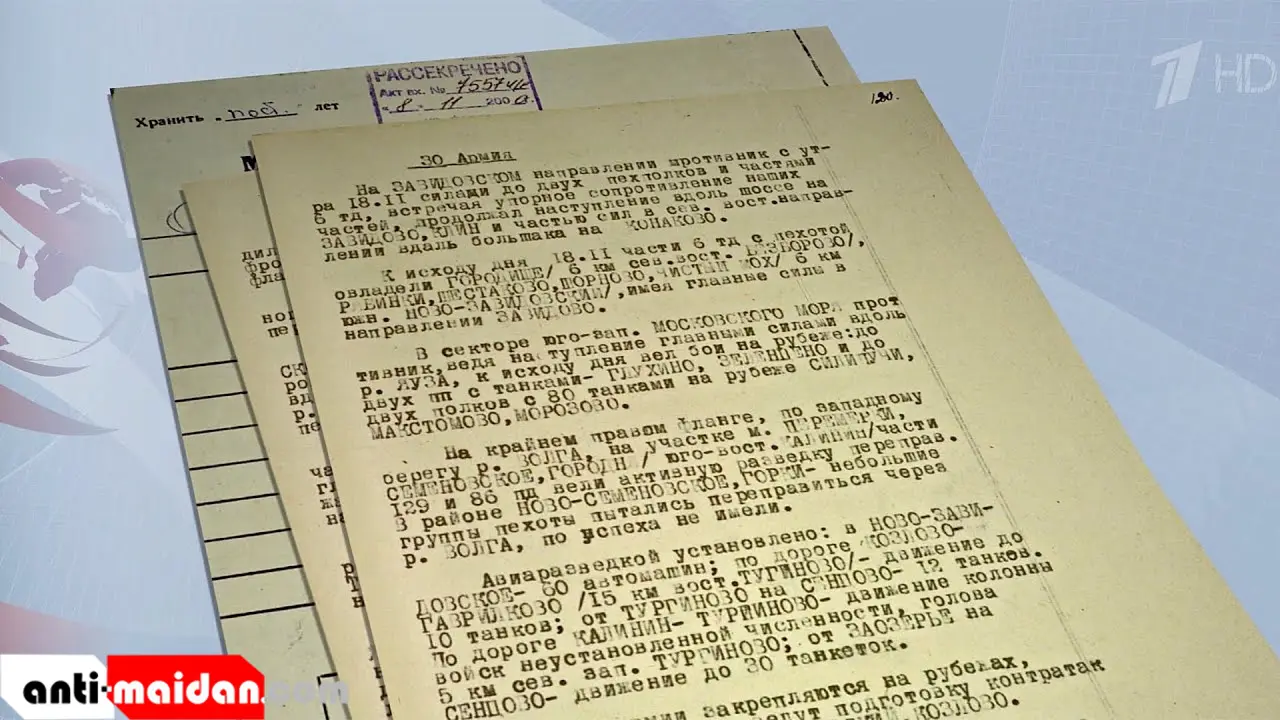 HD
РАССЕКРЕЧЕНО
Акт вх. №
"8" 11 200
Хранить "пост." лет
130.
30 Армия
На ЗАВИДОВСКОМ направлении противник с ут-
ра 18.11 силами до двух пехполков и частями
6 тд, встречая упорное сопротивление наших
частей, продолжал наступление вдоль шоссе на
ЗАВИДОВО,КЛИН и частью сил в сев. вост.направ-
лении вдаль большака на КОНАКОВО.
К исходу дня 18.11 части 6 тд с пехотой
овладели ГОРОДИЩЕ/ 6 км сев.вост. БЕЗБОРОВО/,
РАБИНКИ,ШЕСТАКОВО,ШОРНОВО,ЧИСТЫЙ МОХ/ 6 км
южн. НОВО-ЗАВИДОВСКИЙ/,имея главные силы в
направлении ЗАВИДОВО.
В секторе юго-зап. МОСКОВСКОГО МОРЯ прот
тивник,ведя наступление главными силами вдоль
р. ЯУЗА, к исходу дня вел бои на рубеже:до
двух пп с танками- ГЛУХИНО, ЗЕЛЕНЦЕНО и до
двух полков с 80 танками на рубеже СИЛИПУЧИ,
МАКСТОМОВО,МОРОЗОВО.
На крайнем правом фланге, по западному
берегу р. ВОЛГА, на участке м. ПЕРЕМЕРКИ,
СЕМЕНОВСКОЕ,ГОРОДНЯ/ юго-вост.КАЛИНИН/части
129 и 86 пд вели активную разведку переправ.
В районе НОВО-СЕМЕНОВСКОЕ,ГОРКИ- небольшие
группы пехоты пытались переправиться через
р. ВОЛГА, по успеха не имели.
Авиаразведкой установлено: в НОВО-ЗАВИ-
ДОВСКОЕ- 60 автомашин; по дороге КОЗЛОВО-
ГАВРИЛКОВО /15 км вост.ТУГИНОВО/- движение до
10 танков; от ТУРГИНОВО на СЕНЦОВО- 12 танков.
По дороге КАЛИНИН- ТУРИИНОВО- движение колонны
войск неустановленной численности, голова
5 км сев. зап. ТУРГИНОВО; от ЗАОЗЕРЬЕ на
СЕНЦОВО- движение до 30 танкеток.
закрепляются на рубежах,
подготовку контратак
КОЗЛОВО.
anti-maidan.com